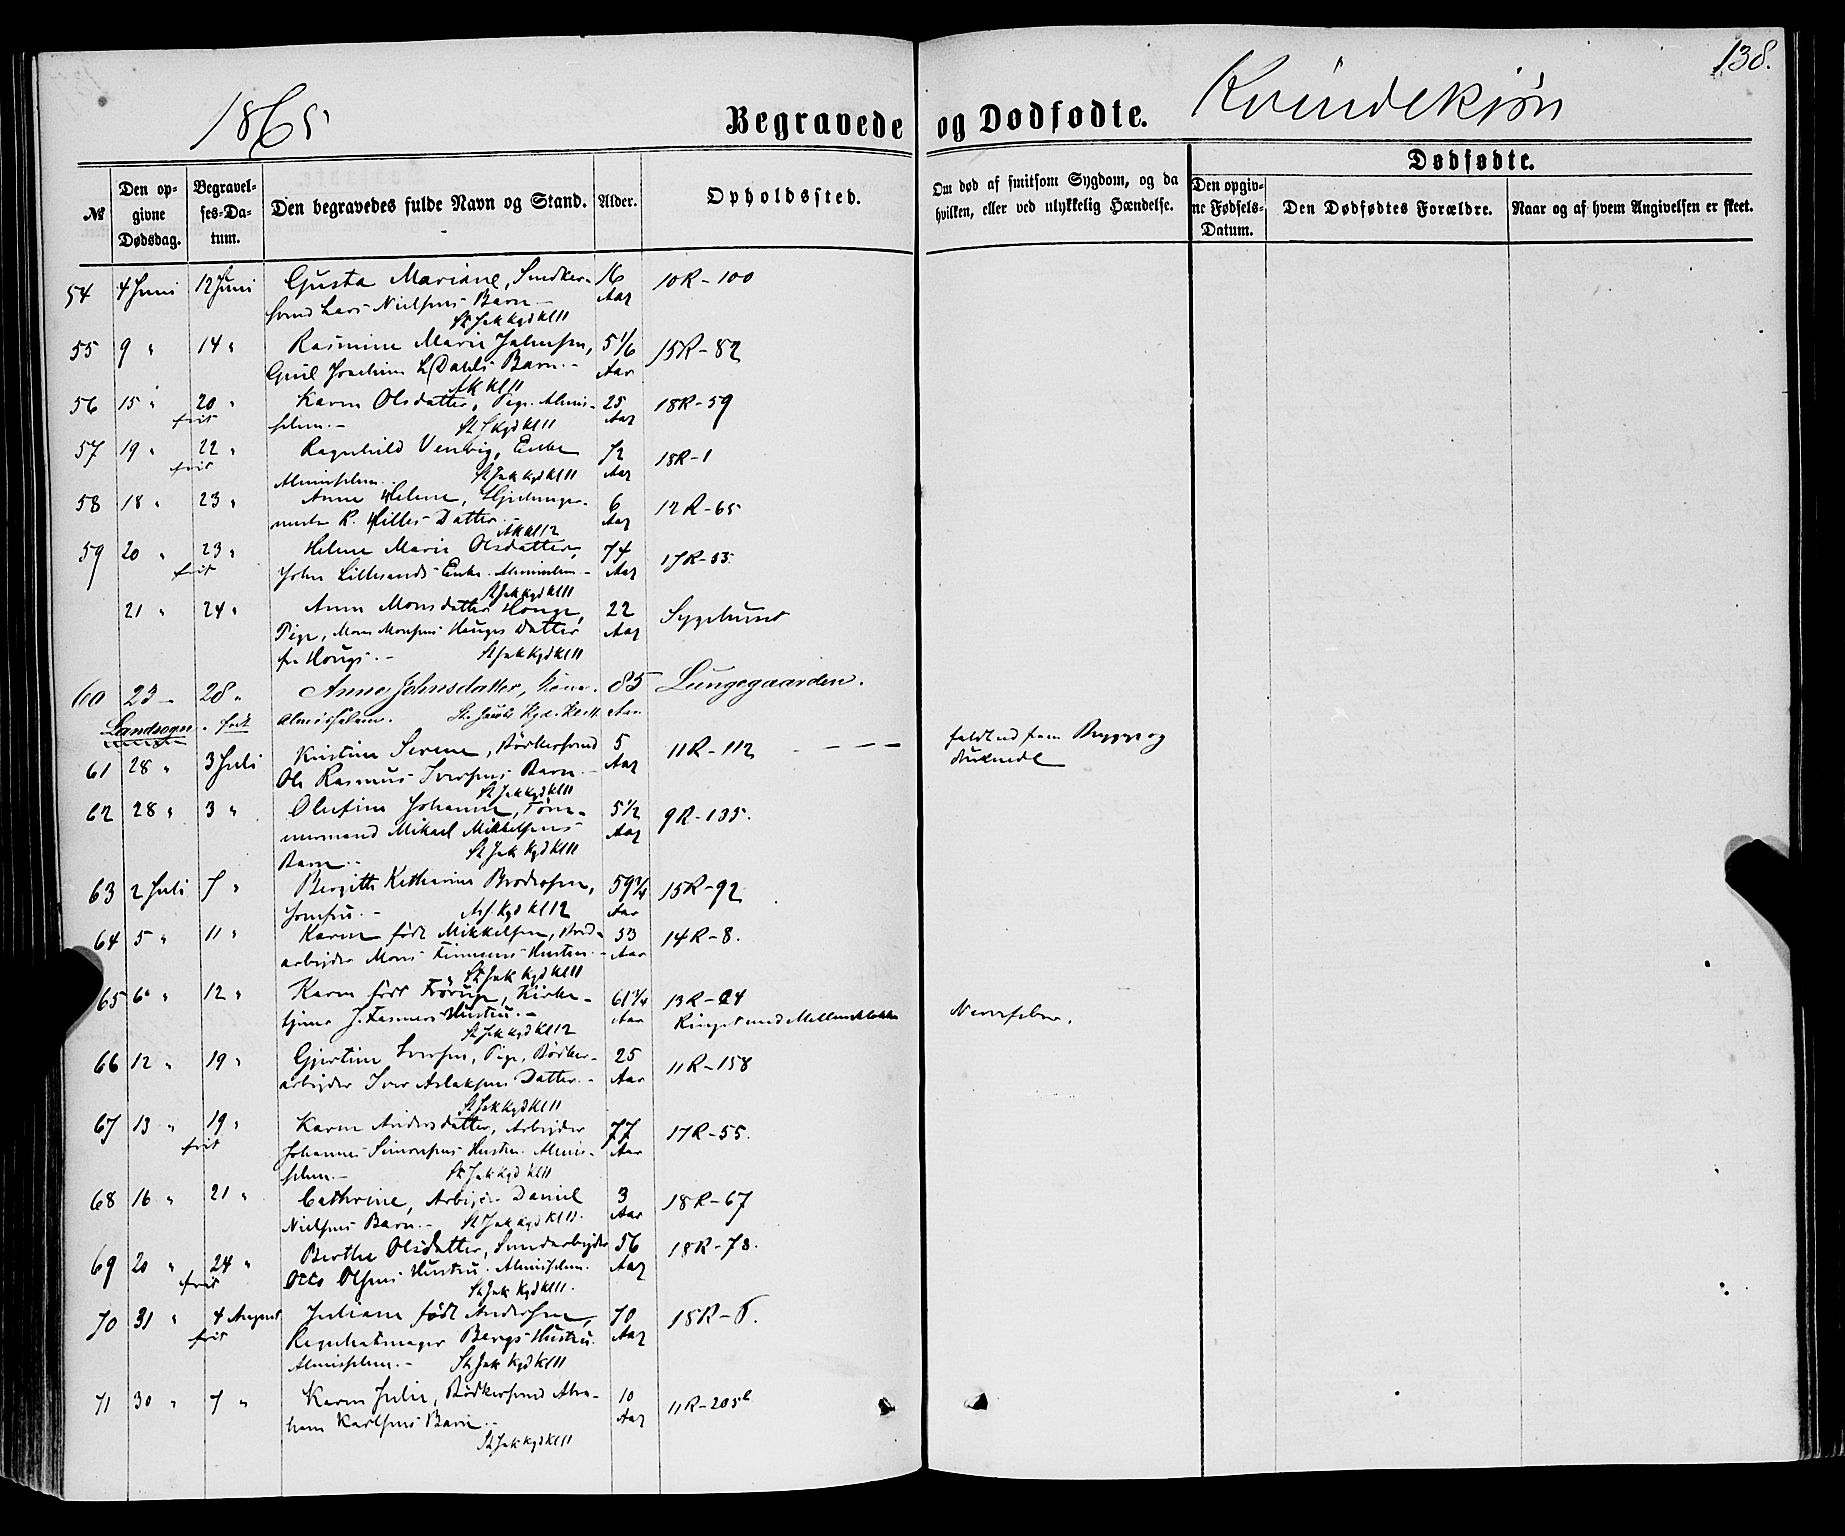 138.
1865
Begravede og Dødfødte. Kvindekjøn
№
Den opgivne Dødsdag.
Begravelses-Datum.
Den begravedes fulde Navn og Stand.
Alder.
Opholdssted.
Om død af smitsom Sygdom, og da hvilken, eller ved ulykkelig Hændelse.
Dødfødte.
Den opgivne Fødsels-Datum.
Den Dødfødtes Forældre.
Naar og af hvem Angivelsen er skeet.
54 4 Juni 12 Juni Gusta Mariane, Smedker- 16 Aar 10R-100
svend Lars Nielsens Barn -
St Jak Kgd Kl 11
55 9 " 14 " Rasmine Marie Johnsen, 5 1/6 Aar 15R-82
Joachim Dahls Barn. -
AK Kl 11
56 15 " 20 " Karen Olsdatter, Pige. Almis- 25 Aar 18R-59
frit selem. -
St J Kgd Kl 11
57 19 " 22 " Ragnhild Vembig, Enke 72 Aar 18R-1
frit Almisselem.
St Jak Kgd Kl 11
58 18 " 23 " Anne Helene, 6 Aar 12R-65
R. Hilles Datter. -
AK Kl 12
59 20 " 23 " Helene Marie Olsdatter, 74 Aar 17R-53.
frit John Lillesands Enke. Almisselem -
St Jak Kgd Kl 11
21 " 24 " Anna Monsdatter Houge, 22 Aar Sygehuset
Pige, Mons Monsens Houges Datter
fra Houge. -
St Jak Kgd Kl 11
60 23 - 28 " Anne Johnsdatter, Kone. 85 Aar Lungegaarden.
Landsogn. frit Almisselem. St. Jacobs Kgd. Kl. 11.
61 28 " 3 Juli Kristine Serene, Bödkersvend 5 Aar 11R-112 - - - - faldt ud fra Brygge og
Ole Rasmus Iversens Barn. - druknede
St Jak Kgd Kl 11
62 28 " 3 " Olufine Johanne, Tøm- 5 1/2 Aar 9R-135.
mermand Mikael Mikkelsens
Barn. -
St Jak Kgd Kl 11
63 2 Juli 7 " Bergitte Katharine Brodersen, 59 3/4 Aar 15R-92
Jomfru. -
Kgd Kl 12
64 5 " 11 " Karen født Mikkelsen, 53 Aar 14R-8.
arbejder Mons Hustru. -
St Jak Kgd Kl 11
65 6 " 12 " Karen født Frörup, Kirke- 61 3/4 Aar 13R-24
tjener J. Fasmers Hustru. - Ringet med Mellemklokken Nervefeber.
St Jak Kgd Kl 12
66 12 " 19 " Gjertine Iversen, Pige, Bödker- 25 Aar 11R-158
arbejder Iver Aslaksens Datter. -
St Jak Kgd Kl 11
67 13 " 19 " Karen Andersdatter, Arbejder 77 Aar 17R-55.
frit Johannes Simonsens Hustru. Almis-
selem. -
St Jak Kgd Kl 11
68 16 " 21 " Cathrine, Arbejder Daniel 3 Aar 18R-67
Nielsens Barn. - St Jak Kgd Kl 11.
69 20 " 24 " Berthe Olsdatter, Smedarbejder 56 Aar 18R-78.
frit Otto Olsens Hustru. Almisselem.
St Jak Kgd Kl 11.
70 31 " 4 August Juliane født Andersen, 70 Aar 18R-6.
frit Bergs Hustru.
Almisselem. - St Jak Kgd Kl 11
71 30 " 7 " Karen Julie, Bödkersvend Abra- 10 Aar 11R-205b
ham Karlsens Barn. -
St Jak Kgd Kl 11